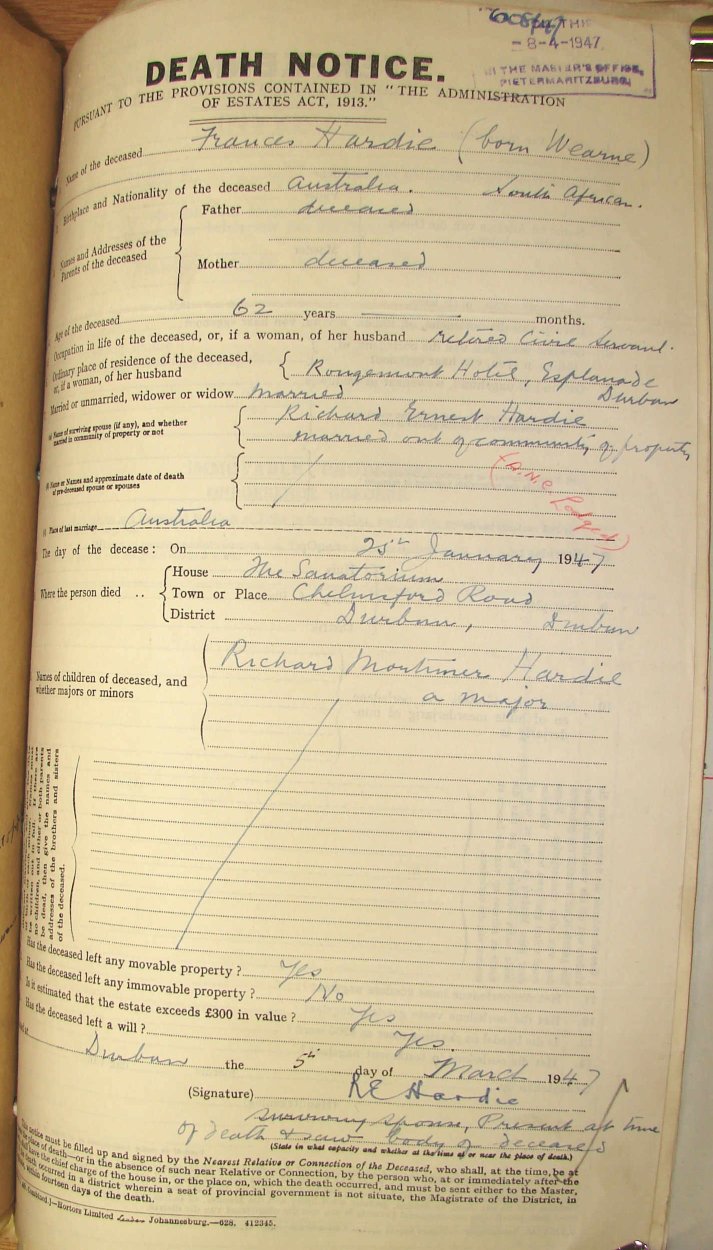 608/47
THE
-8-4-1947
IN THE MASTER'S OFFICE,
PIETERMARITZBURG
DEATH NOTICE.
PURSUANT TO THE PROVISIONS CONTAINED IN "THE ADMINISTRATION
OF ESTATES ACT, 1913."
Name of the deceased Frances Hardie (born Wearne)
Birthplace and Nationality of the deceased Australia. South African.
Names and Addresses of the
Parents of the deceased
Father deceased
Mother deceased
Age of the deceased 62 years — months.
Occupation in life of the deceased, or, if a woman, of her husband retired Civil Servant.
Ordinary place of residence of the deceased,
or, if a woman, of her husband
Rougemont Hotel, Esplanade
Durban
Married or unmarried, widower or widow married
(a) Name of surviving spouse (if any), and whether
married in community of property or not
Richard Ernest Hardie
married out of community of property
(A.N.C. Lodged)
(b) Name or Names and approximate date of death
of pre-deceased spouse or spouses
(c) Place of last marriage Australia
The day of the decease: On 25th January 1947
Where the person died ..
House The Sanatorium
Town or Place Chelmsford Road
District Durban, Durban
Names of children of deceased, and
whether majors or minors
Richard Mortimer Hardie
a major
no children, and either or both parents
be dead, then give the names and
addresses of the brothers and sisters
of the deceased.
Has the deceased left any movable property? Yes
Has the deceased left any immovable property? No
Is it estimated that the estate exceeds £300 in value? Yes
Has the deceased left a will? Yes.
Durban the 5th day of March 1947
(Signature) R E Hardie
surviving spouse, Present at time
of death & saw body of deceased
(State in what capacity and whether at the time of or near the place of death.)
notice must be filled up and signed by the Nearest Relative or Connection of the Deceased, who shall, at the time, be at
the place of death—or in the absence of such near Relative or Connection, by the person who, at or immediately after the
have the chief charge of the house in, or the place on, which the death occurred, and must be sent either to the Master,
death occurred in a district wherein a seat of provincial government is not situate, the Magistrate of the District, in
within fourteen days of the death.
Hortors Limited Johannesburg.—628. 412345.